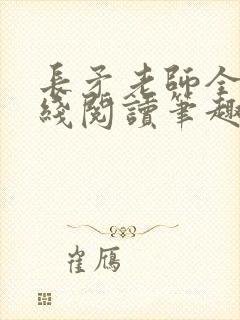 長子老師全
綫閱讀筆趣
崔鴈